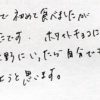 で 初めて食べましたが
たです。 ホワイトチョコに
野にいったら自分でも
ようと思います。